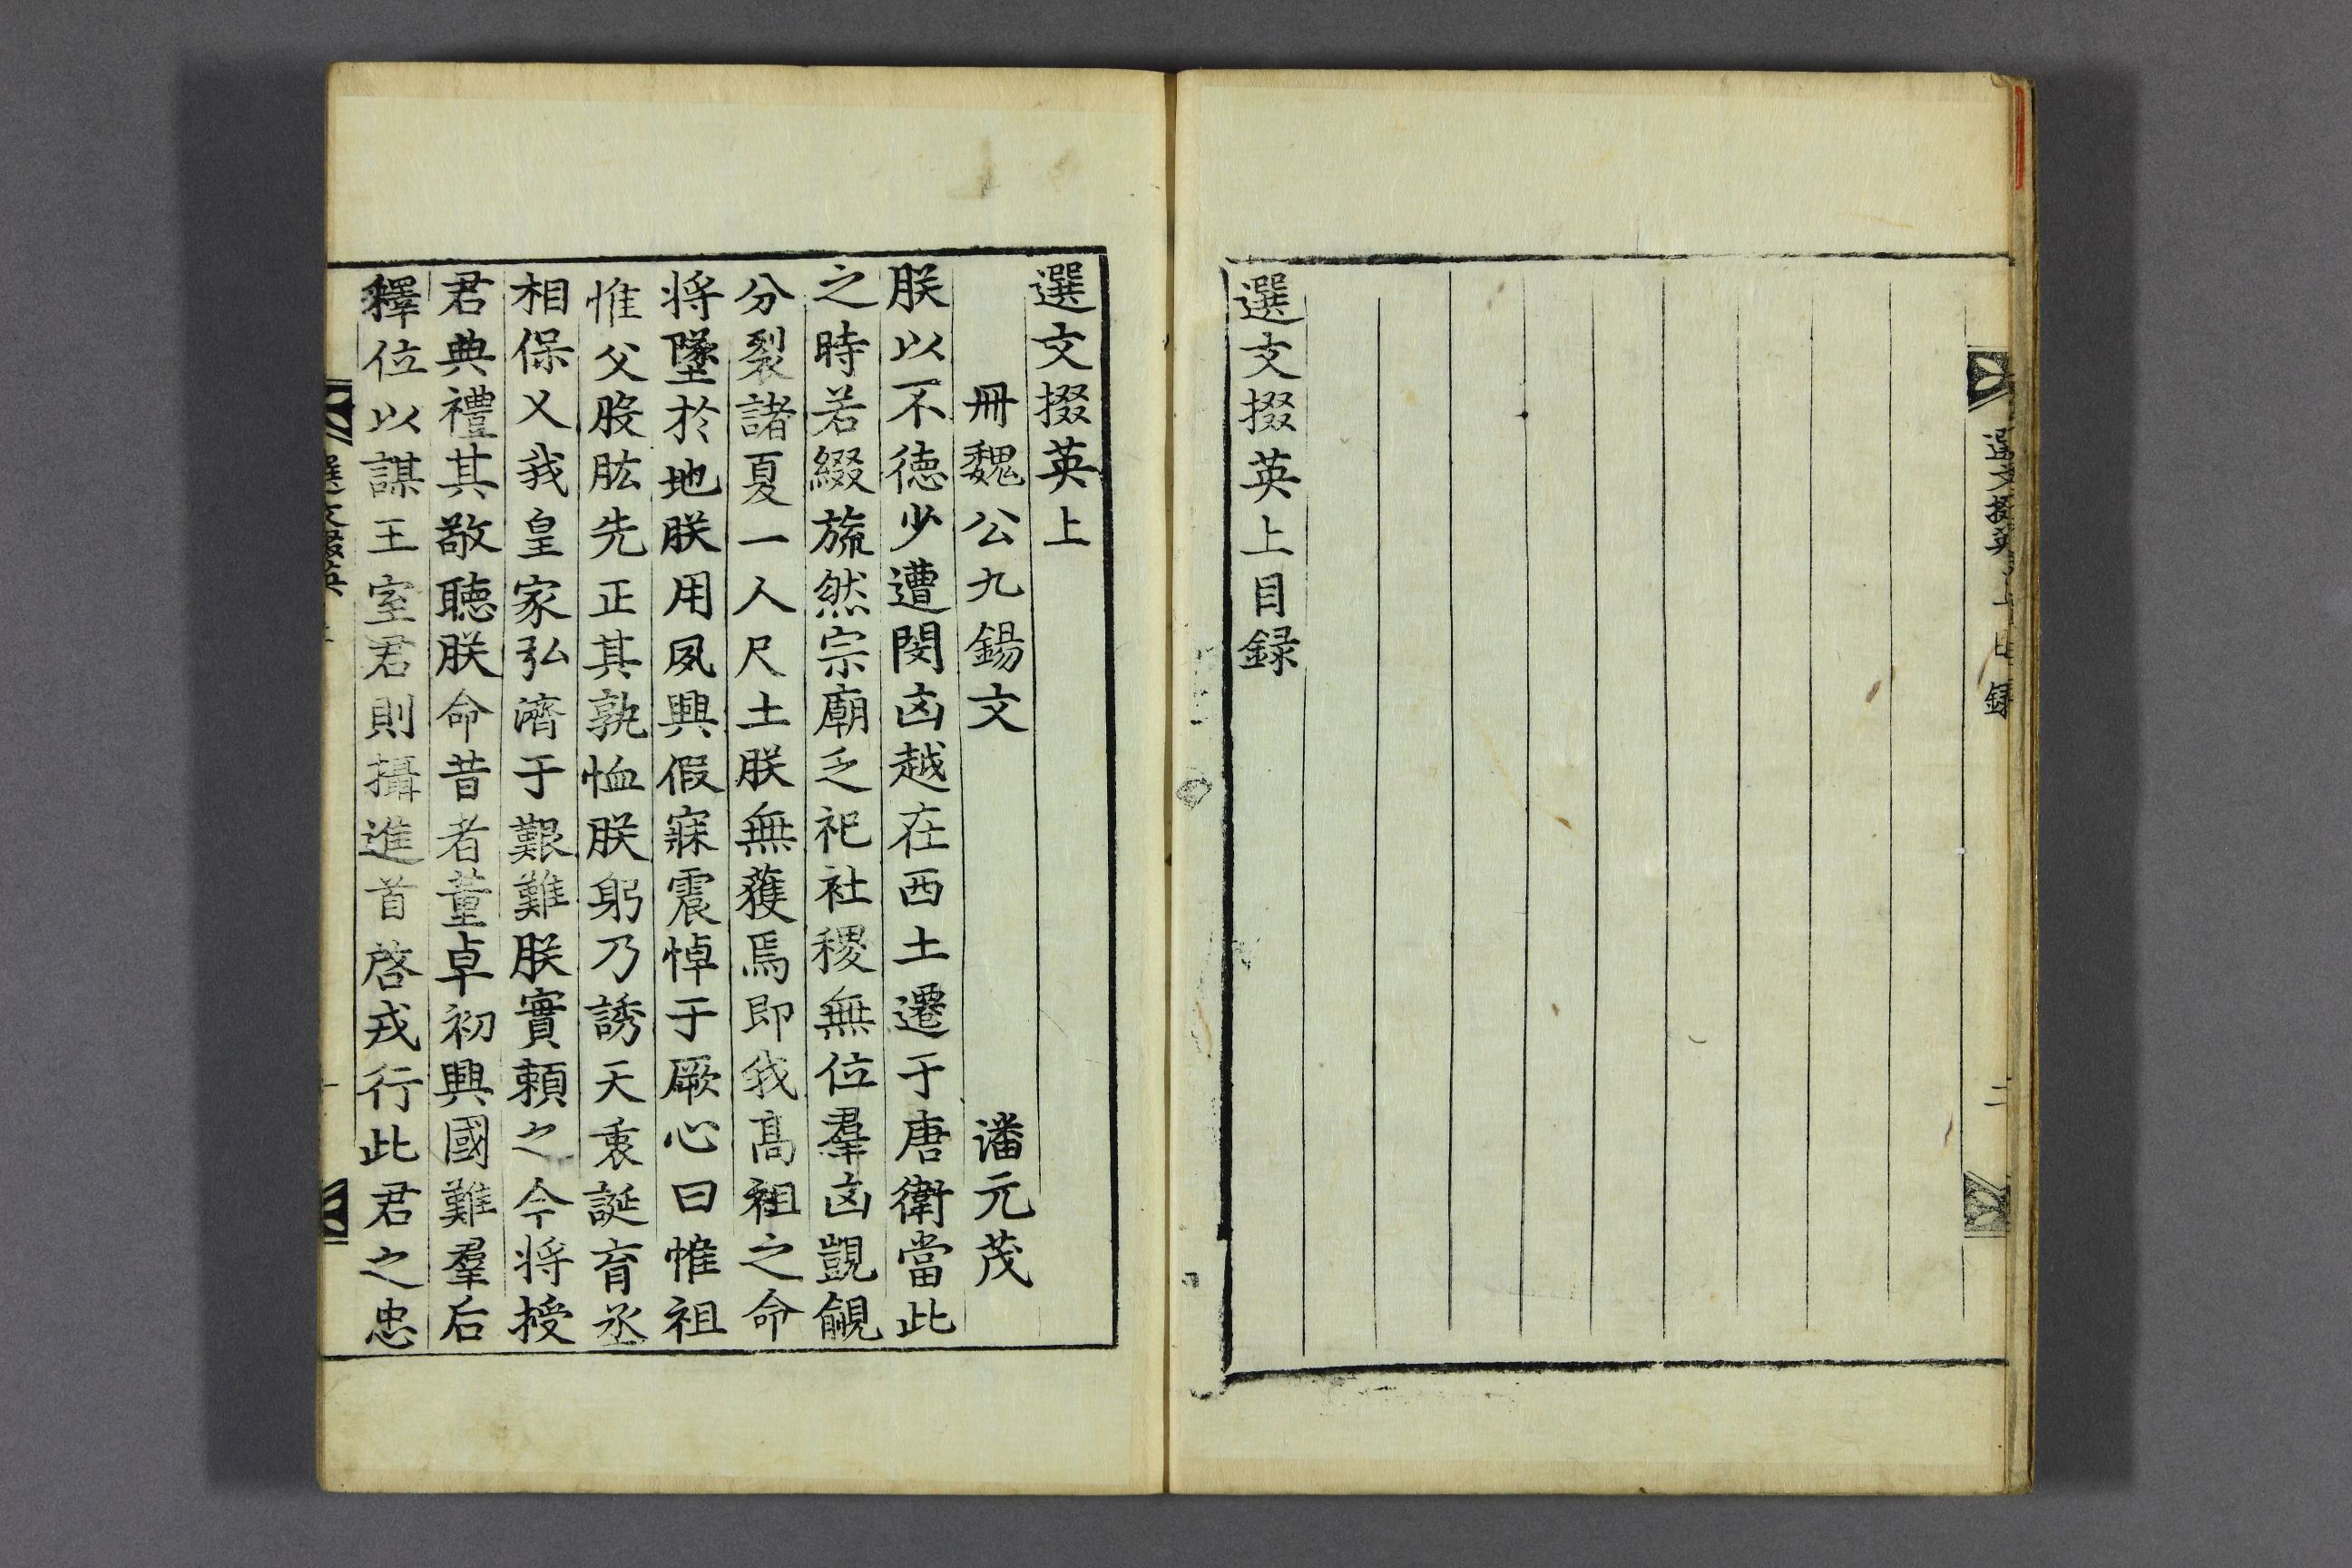 選文掇英上目録
二
選文掇英上目録
選文掇英上
冊魏公九錫文 潘元茂
朕以不徳少遭閔凶越在西土遷于唐衛當此
之時若綴旒然宗廟乏祀社稷無位羣凶覬覦
分裂諸夏一人尺土朕無獲焉即我髙祖之命
将墜於地朕用夙興假寐震悼于厥心曰惟祖
惟父股肱先正其孰恤朕躬乃誘天衷誕育丞
相保乂我皇家弘濟于艱難朕實頼之今将授
君典禮其敬聴朕命昔者董卓初興國難羣后
釋位以謀王室君則攝進首啓戎行此君之忠
選文掇英